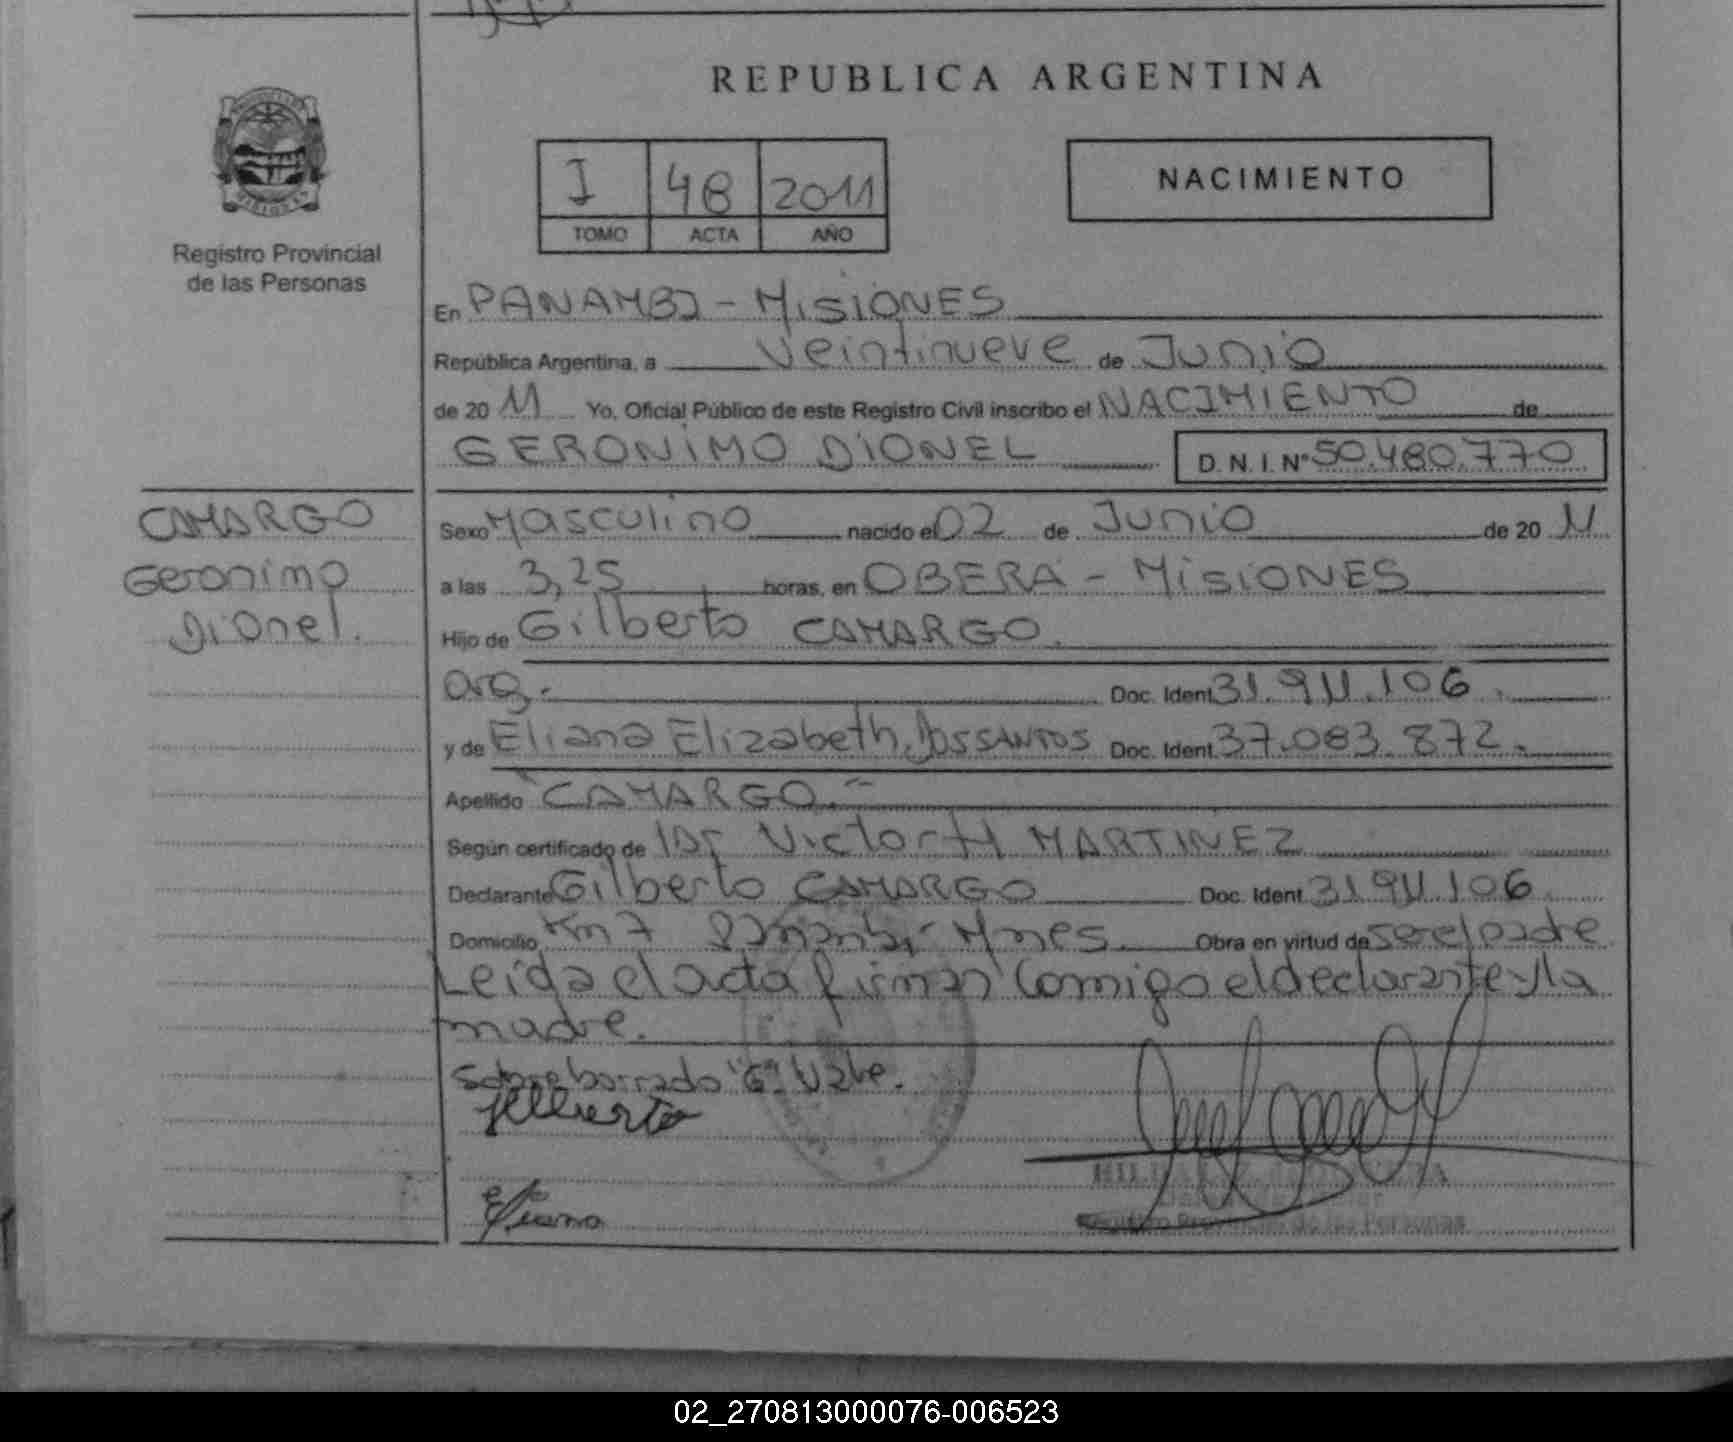 REPUBLICA ARGENTINA
Registro Provincial
de las Personas
I 48 2011
TOMO ACTA AÑO
NACIMIENTO
En PANAMBI - MISIONES
República Argentina, a Veintinueve de Junio
de 20 11 Yo, Oficial Público de este Registro Civil inscribo el NACIMIENTO de
GERONIMO DIONEL D.N.I. Nº 50.480.770
CAMARGO
Geronimo
Dionel.
Sexo Masculino nacido el 02 de Junio de 20 11
a las 3,25 horas, en OBERA - MISIONES
Hijo de Gilberto CAMARGO.
arg. Doc. Ident. 31.911.106.
y de Eliana Elizabeth DOSSANTOS Doc. Ident. 37.083.872.
Apellido "CAMARGO."
Según certificado de Dr Victor H MARTINEZ
Declarante Gilberto CAMARGO Doc. Ident 31911.106
Domicilio Km 7 Panambi - Mnes Obra en virtud de ser el padre
Leida el acta firman comigo el declarante y la
madre.
Sobre borrado "6" Vale.
Eliana
Registro Provincial de las Personas
02_270813000076-006523